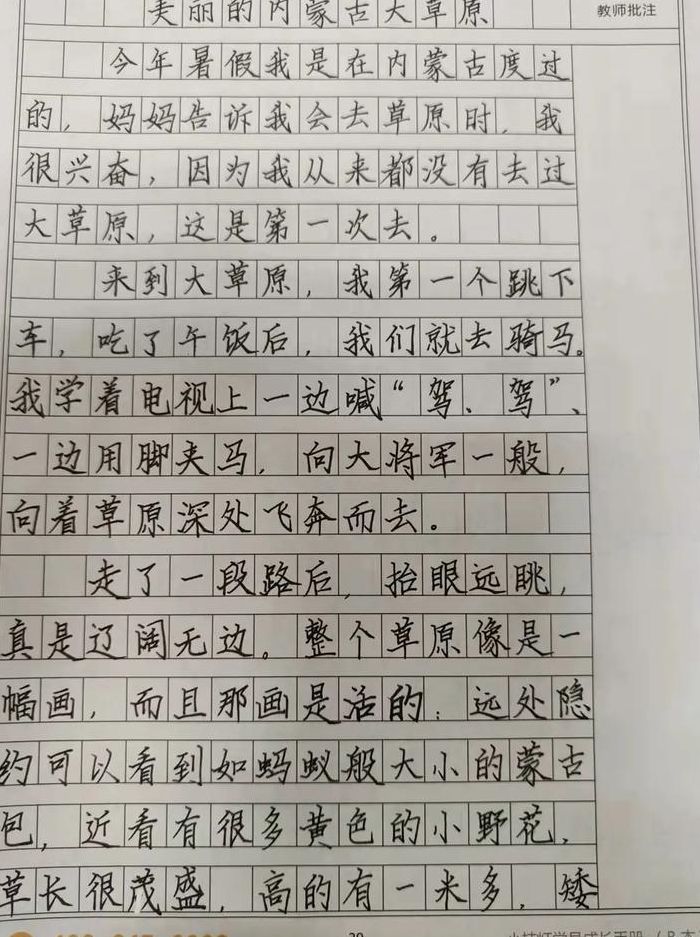 美丽的内蒙古大草原
教师批注
今年暑假我是在内蒙古度过
的，妈妈告诉我会去草原时，我
很兴奋，因为我从来都没有去过
大草原，这是第一次去。
来到大草原，我第一个跳下
车，吃了午饭后，我们就去骑马。
我学着电视上一边喊“驾、驾”、
一边用脚夹马，向大将军一般，
向着草原深处飞奔而去。
走了一段路后，抬眼远眺，
真是辽阔无边。整个草原像是一
幅画，而且那画是活的：远处隐
约可以看到如蚂蚁般大小的蒙古
包，近看有很多黄色的小野花，
草长很茂盛，高的有一米多，矮
39